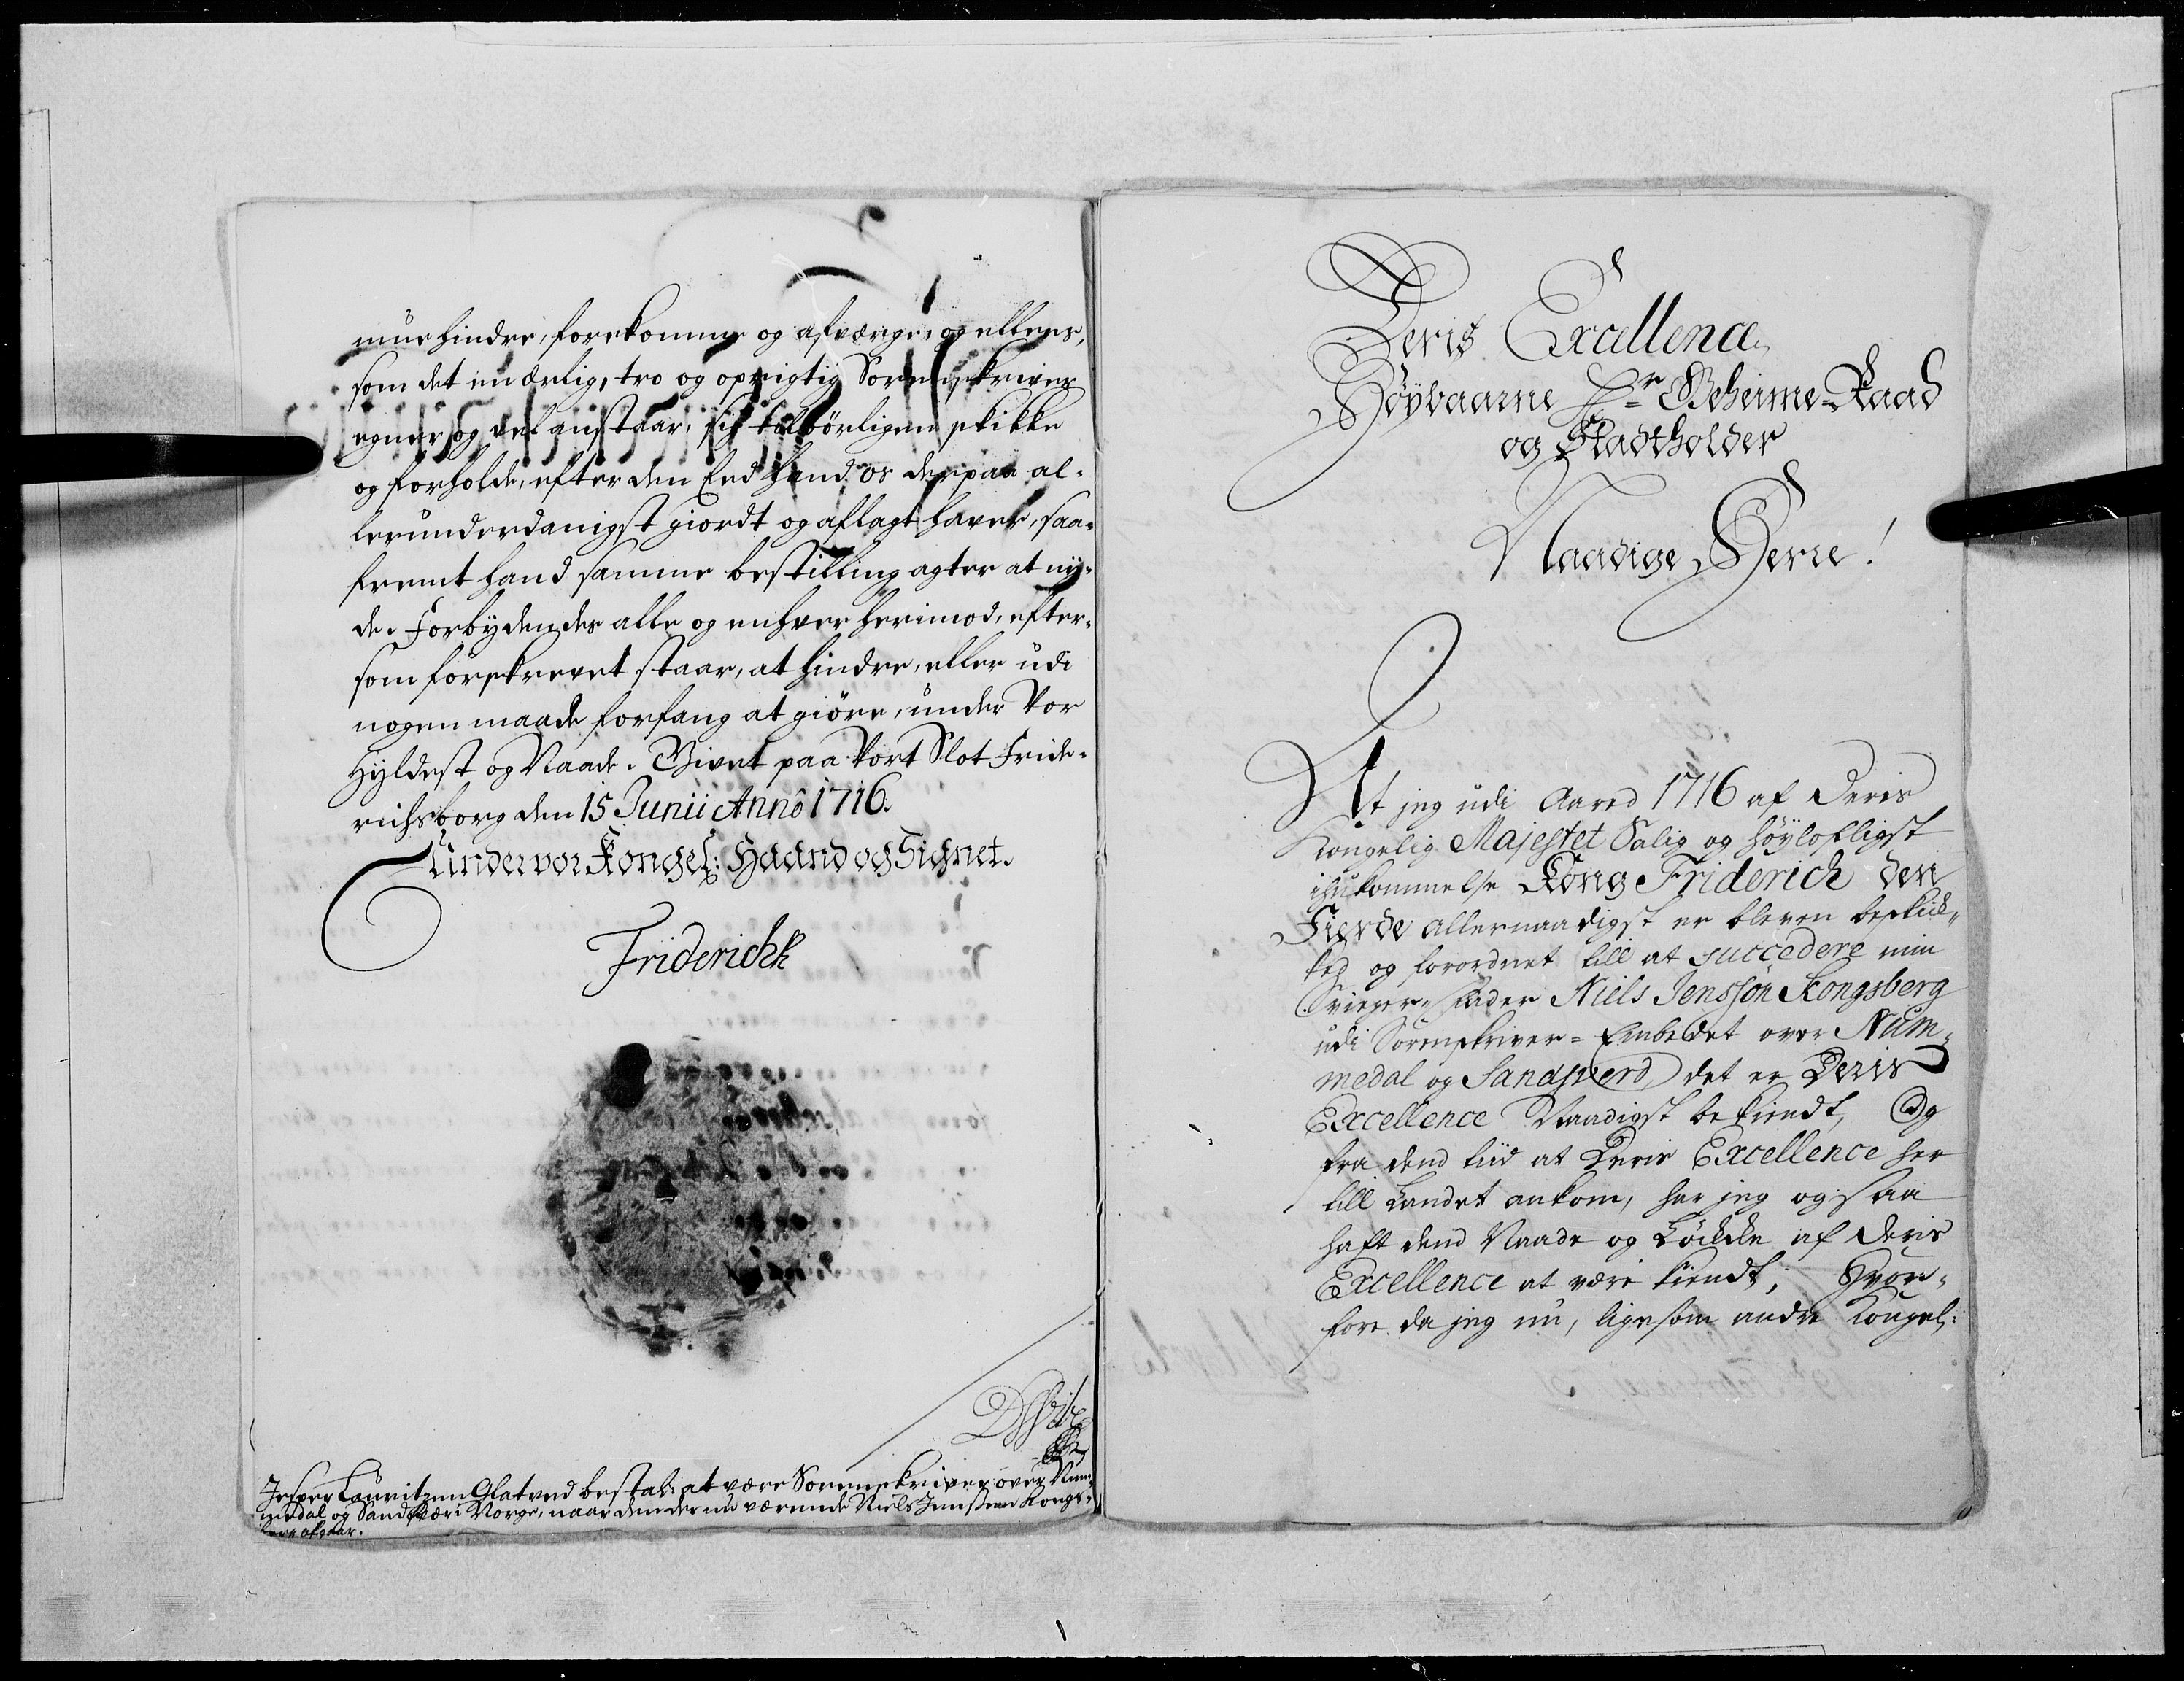 mue hindre, forekomme og afværge, og ellers,
som det en ærlig, tro og oprigtig Sorenskriver
egner og vel anstaar, sig tilbörligen skikke
og forholde, efter den Eed hand os derpaa al-
lerunderdanigst giordt og aflagt haver, saa-
fremt hand samme bestilling agter at ny-
de. Forbydendes alle og enhver herimod, efter-
som foreskrevet staar, at hindre, eller udi
nogen maade forfang at giöre, under Vor
Hyldest og Naade. Givet paa Vort Slot Fride-
richsborg den 15 Junii Annô 1716.
Under vor Kongel: Haand og Signet.
Friderich R
Jesper Lauritzen Glatved bestalt: at være Sorenskriver over Num-
medal og Sandsvær i Norge, naar den der nu værende Niels Jenssen Kongs-
berg afgaar.
Deris Excellence
Höybaarne Hr Geheime-Raad
og Stadtholder
Naadige Herre!
At jeg udi Aared 1716 af Deris
Kongelig Majestet Salig og höylofligst
ihukommelse Kong Friderich den
Fierde allernaadigst er bleven beskik-
ked og forordnet till at succedere min
Svieger-Fader Niels Jensson Kongsberg
udi Sorenskriver-Embedet over Num-
medal og Sandsverd, det er Deris
Excellence Naadigst bekiendt, Og
fra dend tiid at Deris Excellence her
till Landet ankom, har jeg og saa
haft dend Naade og Löcke af Deris
Excellence at være kiendt; Hvor-
fore da jeg nu, ligesom andre Kongel: